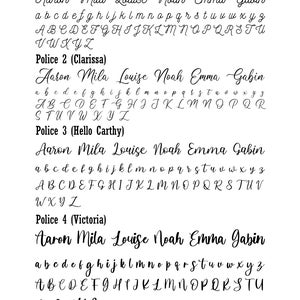 Aaron Mila Louise Noah Emma Gabin
a b c d e f g h i j k l m n o p q r s t u v w x y z
A B C D E F G H I J K L M N O P Q R S T
U V W X Y Z
Police 2 (Clarissa)
Aaron Mila Louise Noah Emma Gabin
a b c d e f g h i j k l m n o p q r s t u v w x y z
A B C D E F G H I J K L M N O P Q R
S T U V W X Y Z
Police 3 (Hello Carthy)
Aaron Mila Louise Noah Emma Gabin
a b c d e f g h i j k l m n o p q r s t u v w x y z
A B C D E F G H I J K L M N O P Q R S T U V
W X Y Z
Police 4 (Victoria)
Aaron Mila Louise Noah Emma Gabin
a b c d e f g h i j k l m n o p q r s t u v w x y z
A B C D E F G H I J K L M N O P Q R S T U